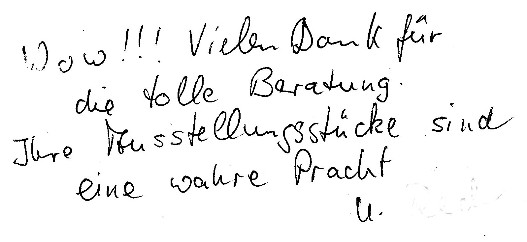 Wow!!! Vielen Dank für
die tolle Beratung.
Ihre Ausstellungsstücke sind
eine wahre Pracht
U.